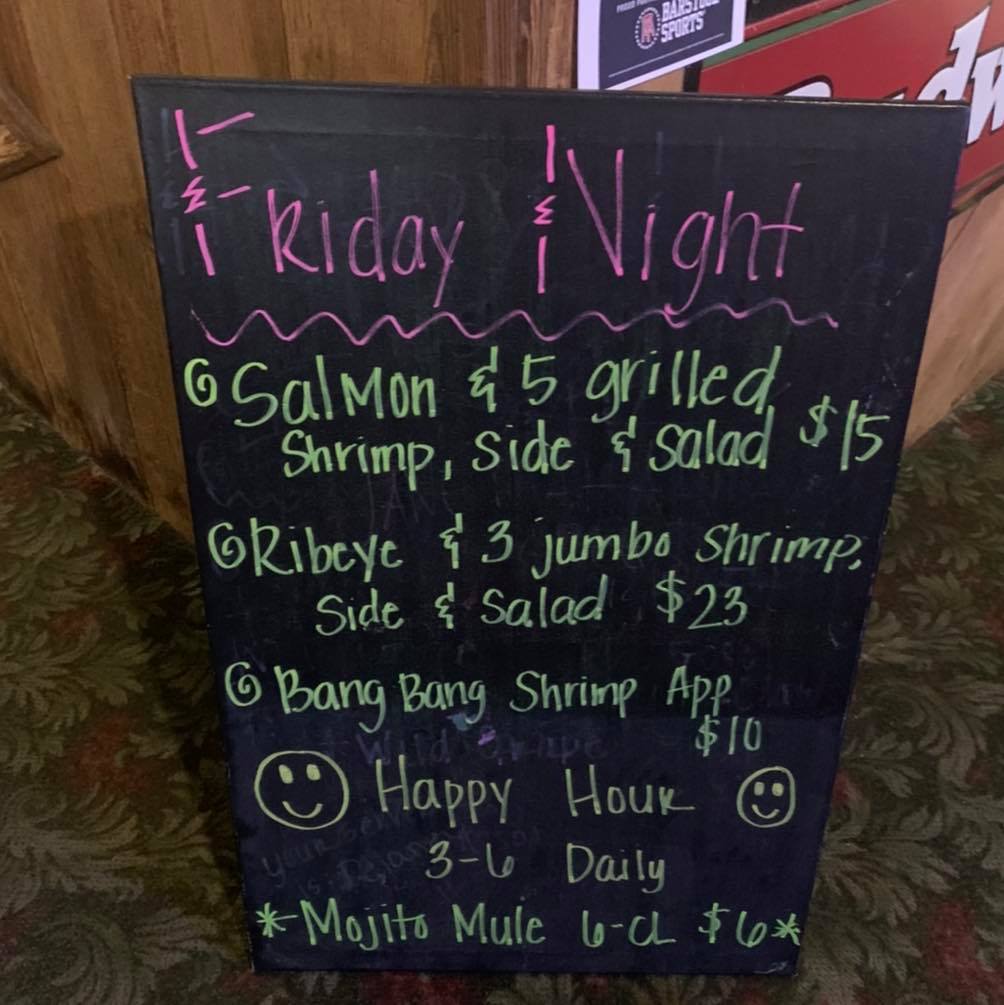 BARSTOOL
SPORTS
Friday Night
Salmon & 5 grilled
Shrimp, side & salad $15
Ribeye & 3 jumbo shrimp,
Side & salad $23
Bang Bang Shrimp App
$10
Happy Hour
3-6 Daily
*Mojito Mule 6-CL $6*